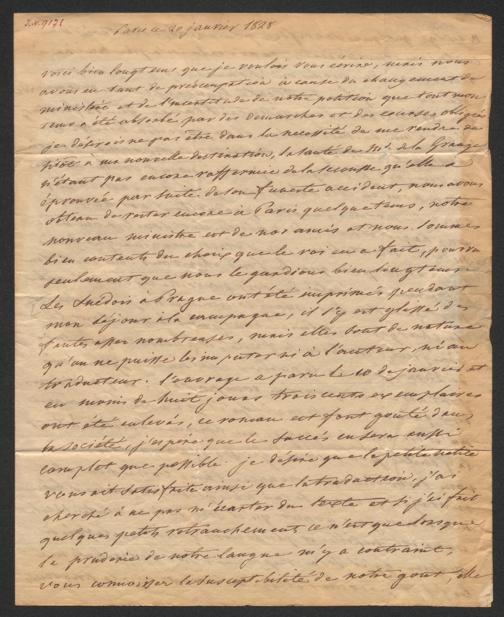 I.N. 9171
Paris ce 20 janvier 1828
voici bien longtems que je voulois vous écrire, mais nous
avons eu tant de préocupation à cause du changement de
ministère et de l'incertitude de notre position que tout mon
tems a été absorbé par des démarches et des courses obligées
je désirois ne pas être dans la necessité de me rendre de
sitot à ma nouvelle destination, la santé de Md. de la Grange
n'étant pas encore raffermie de la secousse qu'elle a
éprouvée par suite de son funeste accident, nous avons
obtenu de rester encore à Paris quelque tems, notre
nouveau ministre est de nos amis et nous sommes
bien contents du choix que le roi en a fait, pourvu
seulement que nous le gardions bien longtems
Les Suédois à Prague ont été imprimés pendant
mon séjour à la campagne, il s'y est glissé des
fautes assez nombreuses, mais elles sont de nature
qu'on ne puisse les imputer ni à l'auteur, ni au
traducteur. l'ouvrage a paru le 10 de janvier et
en moins de huit jours trois cents exemplaires
ont été enlevés, ce roman est fort gouté dans
la société, j'espère que le succès en sera aussi
complet que possible. je désire que la petite notice
vous ait satisfaite ainsi que la traduction, j'ai
cherché à ne pas m'écarter du texte et si j'ai fait
quelques petits retranchements ce n'est que lorsque
la pruderie de notre langue m'y a contraint,
vous connaissez la susceptibilité de notre gout, elle